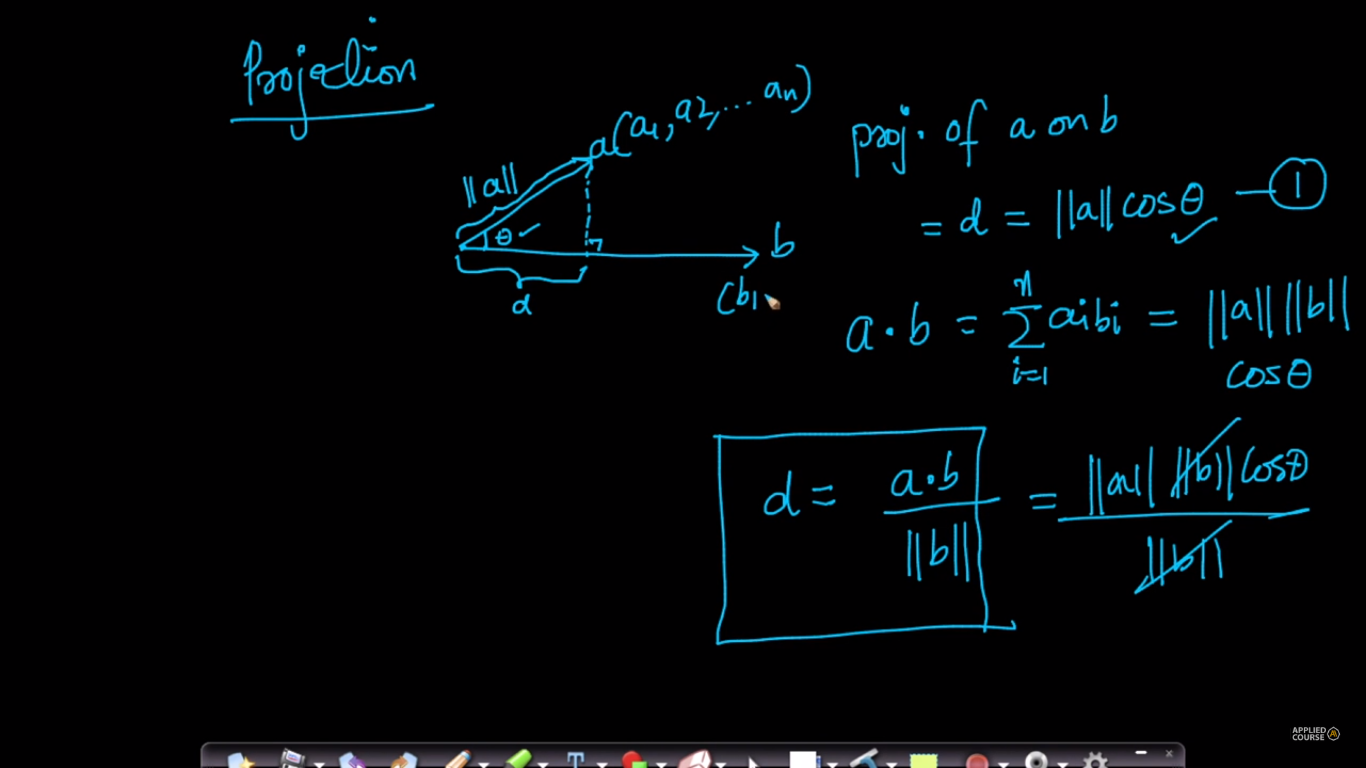 Projection
a(a1, a2, ... an)
||a||
θ
d
b
(b1
proj. of a on b
= d = ||a|| cosθ — 1
a·b = n∑i=1 aibi = ||a|| ||b||
cosθ
d = a·b / ||b|| = ||a|| ||b|| cosθ / ||b||
T
APPLIED
COURSE